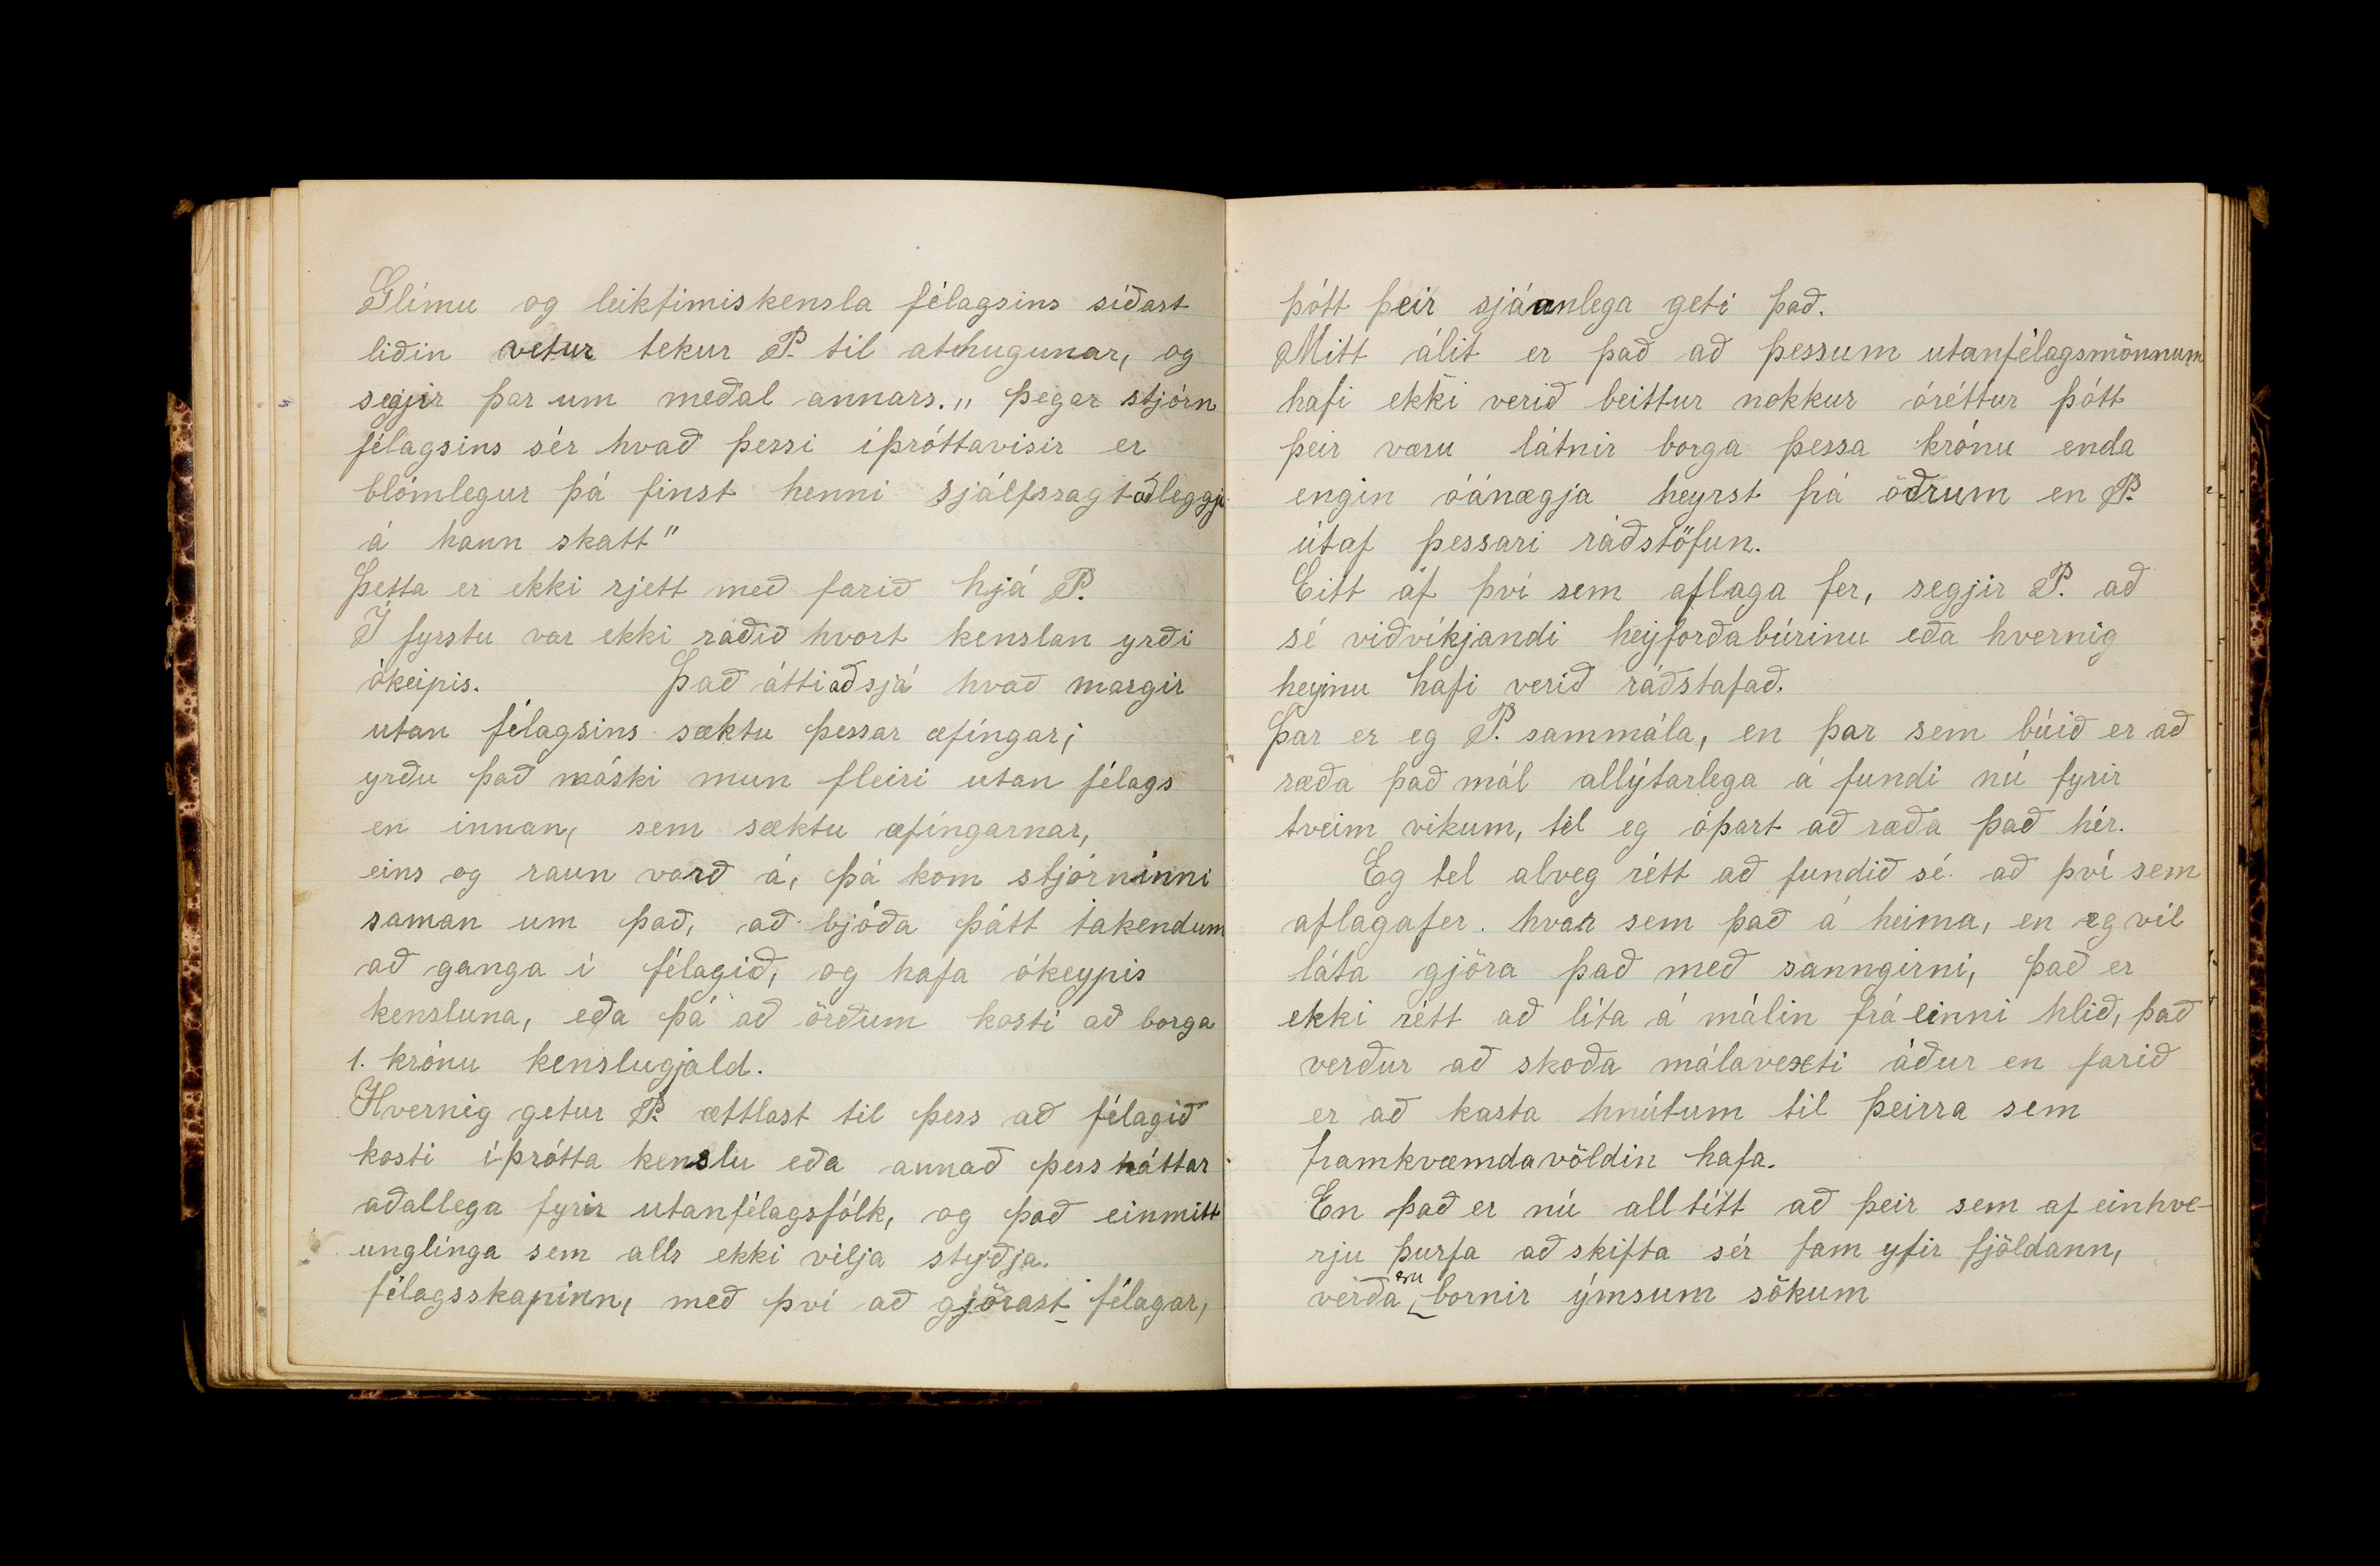 Glímu og leikfimiskensla félagsins síðast
liðin vetur tekur P. til athugunar, og
segjir þar um meðal annars. „ þegar stjórn
félagsins sér hvað þessi íþróttavisir er
blómlegur þá finst henni sjálfsragt að leggja
á hann skatt"
Þetta er ekki rjett með farið hjá P.
Í fyrstu var ekki ráðið hvort kenslan yrði
ókeipis. Það átti að sjá hvað margir
utan félagsins sæktu þessar æfingar;
yrðu það máski mun fleiri utan félags
en innan, sem sæktu æfingarnar,
eins og raun varð á, þá kom stjórninni
saman um það, að bjóða þátt takendum
að ganga í félagið, og hafa ókeypis
kensluna, eða þá að örðum kosti að borga
1. krónu kenslugjald.
Hvernig getur P. ættlast til þess að félagið
kosti íþrótta kenslu eða annað þess háttar
aðallega fyrir utanfélagsfólk, og það einmitt
unglinga sem alls ekki vilja styðja.
félagsskapinn, með því að gjörast félagar,
þótt þeir sjáanlega geti það.
Mitt álit er það að þessum utanfélagsmönnum
hafi ekki verið beittur nokkur óréttur þótt
þeir væru látnir borga þessa krónu enda
engin óánægja heyrst frá öðrum en P.
útaf þessari ráðstöfun.
Eitt af því sem aflaga fer, segjir P. að
sé viðvíkjandi heyforðabúrinu eða hvernig
heyinu hafi verið ráðstafað.
Þar er eg P. sammála, en þar sem búið er að
ræða það mál allýtarlega á fundi nú fyrir
tveim vikum, tel eg óþart að ræða það hér.
Eg tel alveg rétt að fundið sé að því sem
aflagafer. hvar sem það á heima, en eg vil
láta gjöra það með sanngirni, það er
ekki rétt að líta á málin frá einni hlið, það
verður að skoða málavexti áður en farið
er að kasta hnútum til þeirra sem
framkvæmdavöldin hafa.
En það er nú all títt að þeir sem af einhve-
rju þurfa að skifta sér fam yfir fjöldann,
verða eru bornir ýmsum sökum